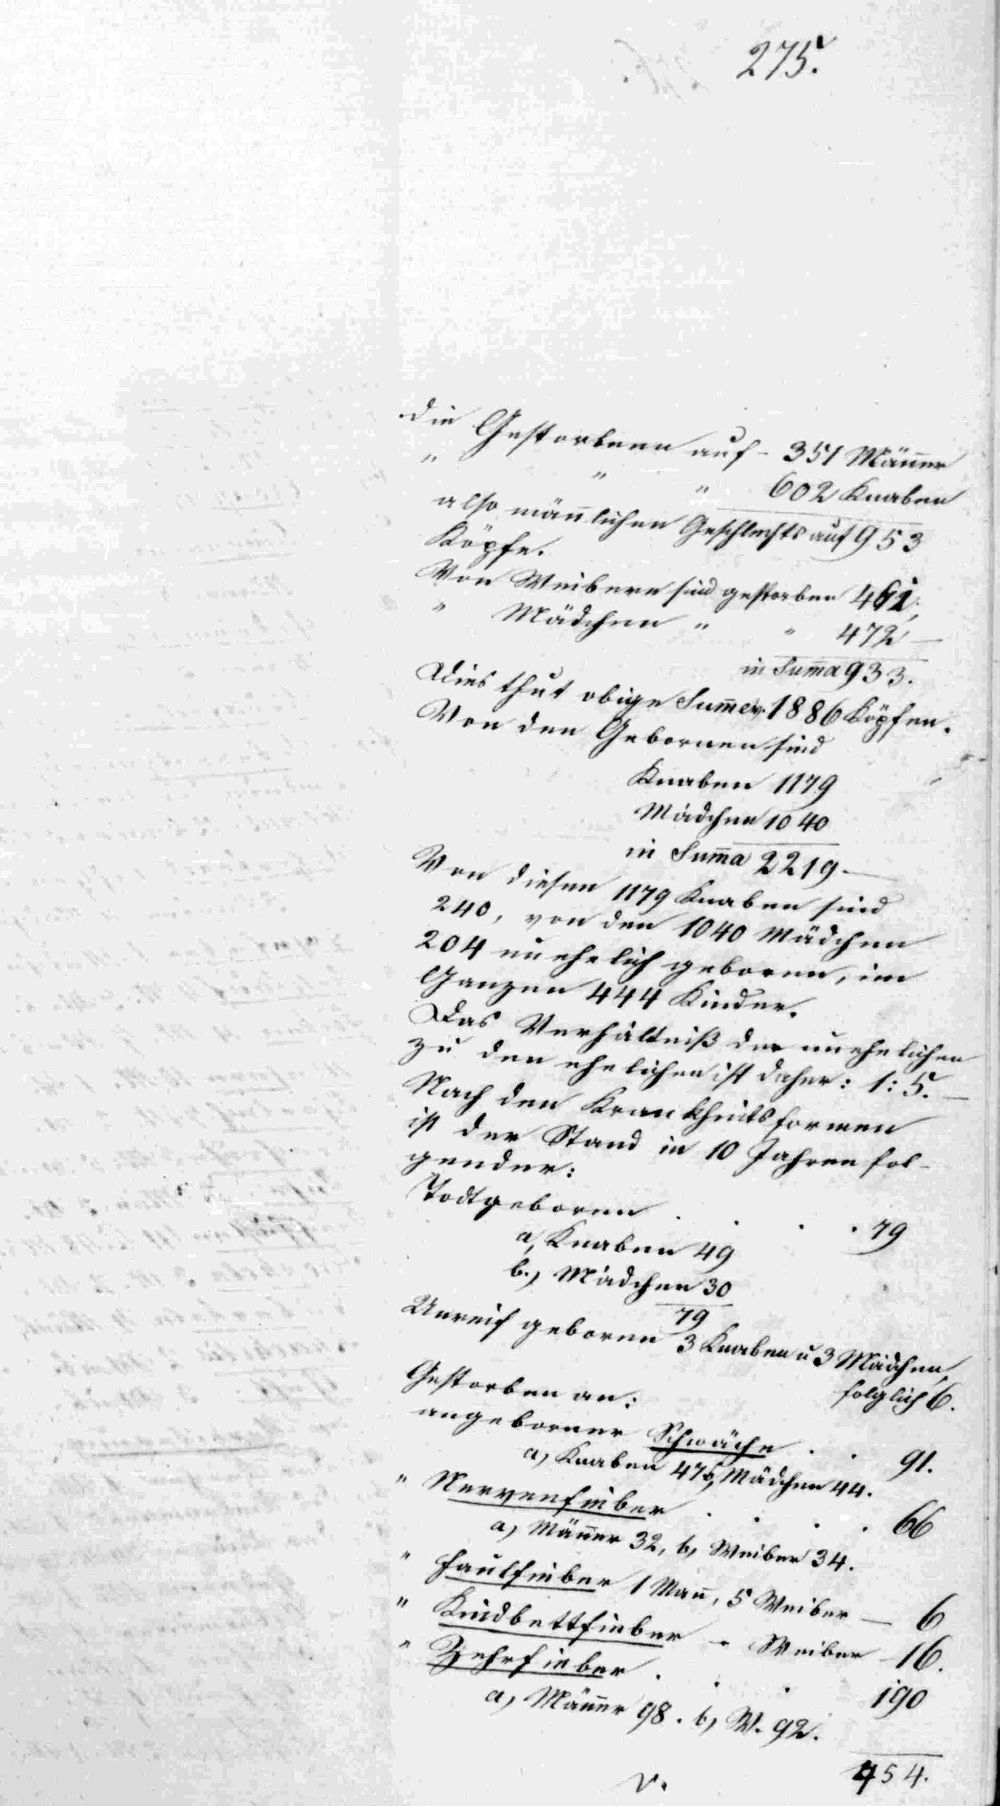 275.
die Gestorbenen auf - 351 Mäñer
" " " 602 Knaben
also mäñlichen Geschlechts auf 953
Köpfe.
Von Weibern sind gestorben 461,
" Mädchen " " 472 —
in Sum̃a 933.
Dies thut obige Sum̃e v. 1886 Köpfen.
Von den Gebornen sind
Knaben 1179
Mädchen 1040
in Sum̃a 2219.—
Von diesen 1179 Knaben sind
240, von den 1040 Mädchen
204 unehelich geboren, im
Ganzen 444 Kinder.
Das Verhältniß der unehelichen
zu den ehelichen ist daher: 1:5. —
Nach den Krankheitsformen
ist der Stand in 10 Jahren fol-
gender:
Todtgeboren . . . . 79
a, Knaben 49
b., Mädchen 30
79
Unreif geboren 3 Knaben u 3 Mädchen,
folglich 6.
Gestorben an:
angeborner Schwäche . . 91.
a, Knaben 47 b, Mädchen 44.
" Nervenfieber . . . . 66
a, Mäñer 32, b, Weiber 34.
" Faulfieber 1 Mañ, 5 Weiber — 6
" Kindbettfieber - Weiber - 16.
" Zehrfieber . . . 190
a, Mäñer 98. b, W. 92.
454.